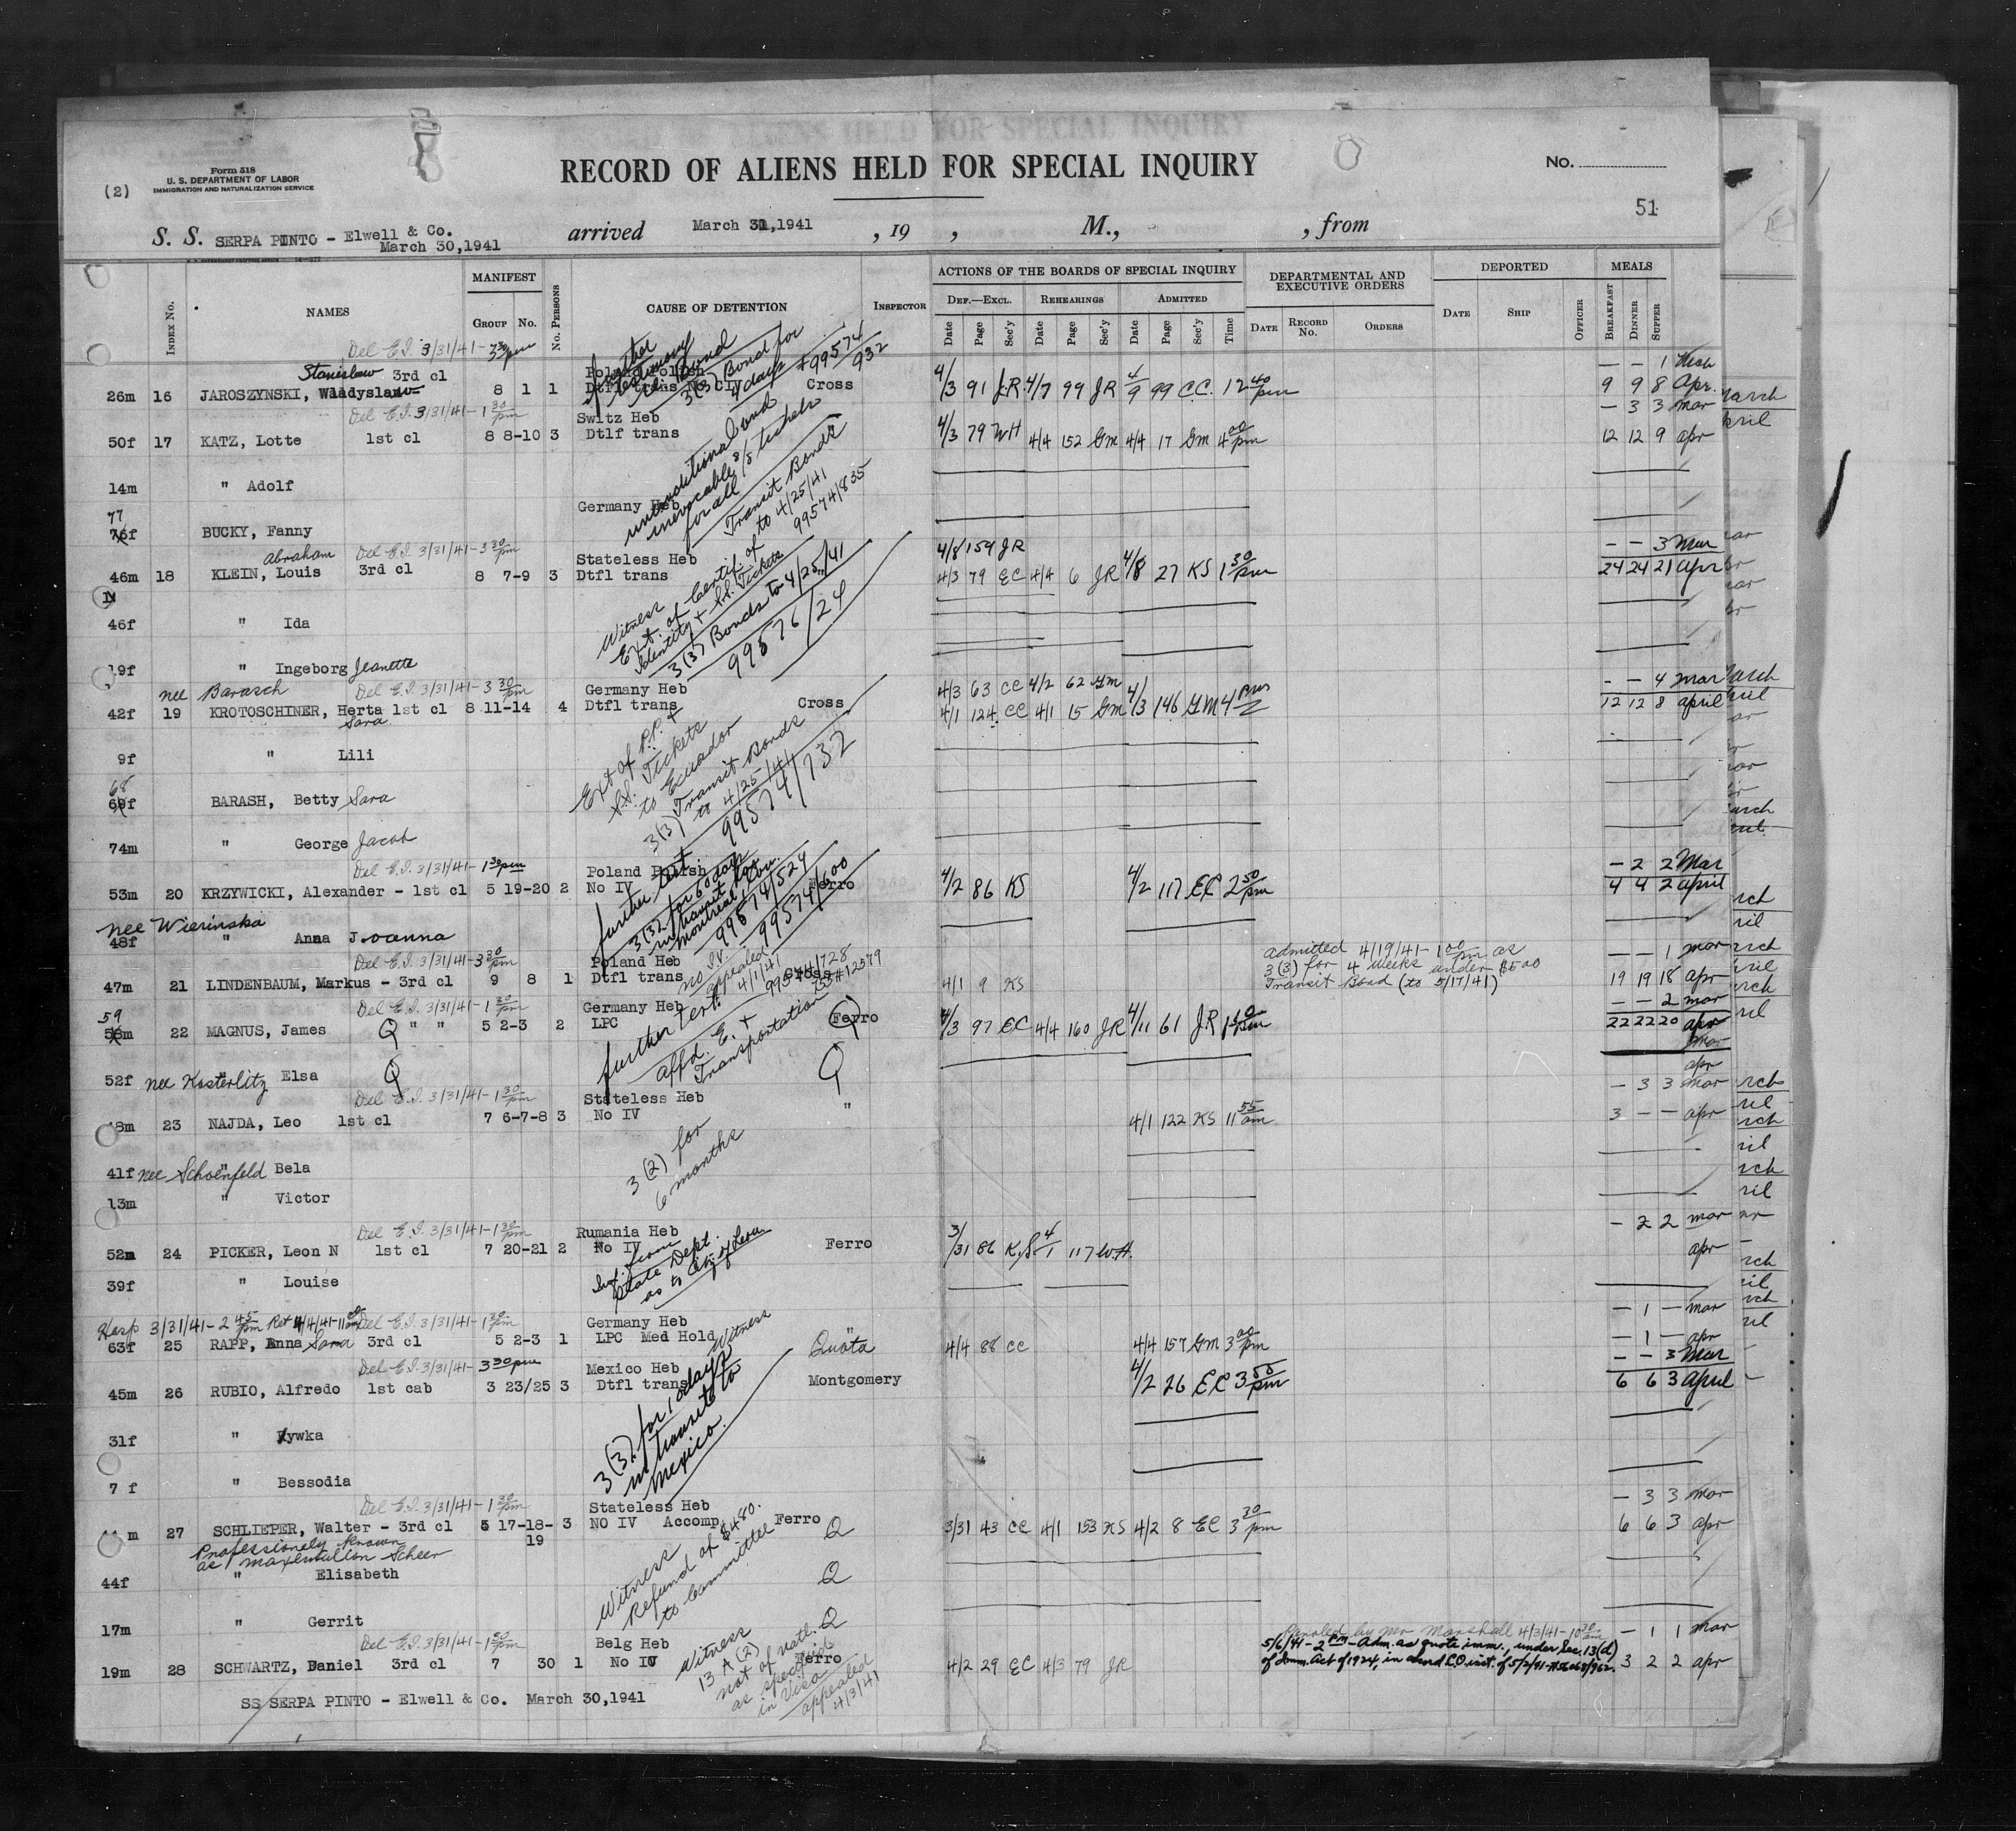 (2)
Form 518
U. S. DEPARTMENT OF LABOR
IMMIGRATION AND NATURALIZATION SERVICE
RECORD OF ALIENS HELD FOR SPECIAL INQUIRY
No.
51
S. S. SERPA PINTO - Elwell & Co. arrived March 31,1941, 19 , M., , from
March 30,1941
Index No. NAMES MANIFEST Group No. No. Persons CAUSE OF DETENTION Inspector
ACTIONS OF THE BOARDS OF SPECIAL INQUIRY
Def.—Excl. Rehearings Admitted
Date Page Sec'y Date Page Sec'y Date Page Sec'y Time
DEPARTMENTAL AND EXECUTIVE ORDERS
Date Record No. Orders
DEPORTED
Date Ship Officer
MEALS
Breakfast Dinner Supper
Del E.I. 3/31/41 - 3 30 pm
Stanislaw 3rd cl Poland Polish
26m 16 JAROSZYNSKI, Wladyslaw 8 1 1 Dtfl trans No CIV Cross 4/3 91 JR 4/7 99 JR 4/9 99 CC. 12 40 pm
3(3) Bond for
99574/932
- - 1 Mch
9 9 8 Apr.
Del E.I. 3/31/41 - 1 30 pm
Switz Heb
50f 17 KATZ, Lotte 1st cl 8 8-10 3 Dtlf trans 4/3 79 WH 4/4 152 Gm 4/4 17 Gm 4 00 pm
- 3 3 mar
12 12 9 apr
unconditional and
irrevocable
for all
14m " Adolf
Germany Heb
77
76f BUCKY, Fanny
Transit Bonds
to 4/25/41
99574/835
Abraham Del E.I. 3/31/41 - 3 30 pm
Stateless Heb 4/8 159 JR
46m 18 KLEIN, Louis 3rd cl 8 7-9 3 Dtfl trans 4/3 79 EC 4/4 6 JR 4/8 27 KS 1 30 pm
- - 3 Mar
24 24 21 Apr
Witness
Ext. of Certif. of
Identity & S.S. Tickets
3(3) Bonds to 4/25/41
99576/24
46f " Ida
19f " Ingeborg Jeanette
nee Barasch Del E.I. 3/31/41 - 3 30 pm
Germany Heb 4/3 63 CC 4/2 62 Gm
42f 19 KROTOSCHINER, Herta 1st cl 8 11-14 4 Dtfl trans Cross 4/1 124 CC 4/1 15 Gm 4/3 146 GM 4 pm
Sara
- - 4 mar
12 12 8 april
Ext of P.P. &
S.S. Tickets
to Ecuador
3(3) Transit Bonds
to 4/25/41
99574/732
9f " Lili
68
69f BARASH, Betty Sara
74m " George Jacob
Del E.I. 3/31/41 - 1 30 pm
Poland Polish
53m 20 KRZYWICKI, Alexander - 1st cl 5 19-20 2 No IV Ferro 4/2 86 KS 4/2 117 EC 2 50 pm
- 2 2 Mar
4 4 2 april
further test.
3(3) for 60 days
in transit
99574/524
99574/600
nee Wierinska
48f " Anna Joanna
Del E.I. 3/31/41 - 3 30 pm
Poland Heb
47m 21 LINDENBAUM, Markus - 3rd cl 9 8 1 Dtfl trans Cross 4/1 9 KS
no IV.
appealed 4/11/41
99574/728
admitted 4/19/41 - 1 00 pm as
3(3) for 4 weeks under $500
Transit Bond (to 5/17/41)
- - 1 mar
19 19 18 apr
Del E.I. 3/31/41 - 1 30 pm
Germany Heb
59
58m 22 MAGNUS, James Q " " 5 2-3 2 LPC Ferro 4/3 97 EC 4/4 160 JR 4/11 61 JR
- - 2 mar
22 22 20 apr
further test.
affd. E. &
Transportation
mar
apr
52f nee Kosterlitz " Elsa Q Q
Del E.I. 3/31/41 - 1 30 pm
Stateless Heb
48m 23 NAJDA, Leo 1st cl 7 6-7-8 3 No IV " 4/1 122 KS 11 55 am.
- 3 3 mar
3 - - apr
3(2) for
6 months
41f nee Schoenfeld " Bela
13m " Victor
Del E.I. 3/31/41 - 1 30 pm
Rumania Heb
52m 24 PICKER, Leon N 1st cl 7 20-21 2 No IV Ferro 3/31 86 K.S. 4/1 117 W.H.
- 2 2 mar
apr
Inf. from
State Dept.
39f " Louise
Hosp 3/31/41 - 2 45 pm Ret 4/4/41 - 11 00 am Del E.I. 3/31/41 - 1 30 pm
Germany Heb Witness
63f 25 RAPP, Anna Sara 3rd cl 5 2-3 1 LPC Med Hold Quota 4/4 88 CC 4/4 157 Gm 3 00 pm
- 1 - mar
- 1 - apr
Del E.I. 3/31/41 - 3 30 pm
Mexico Heb
45m 26 RUBIO, Alfredo 1st cab 3 23/25 3 Dtfl trans Montgomery 4/2 26 EC 3 50 pm
- - 3 Mar
6 6 3 April
3(3) for 10 days
in transit to
Mexico.
31f " Rywka
7 f " Bessodia
Del E.I. 3/31/41 - 1 30 pm
Stateless Heb
m 27 SCHLIEPER, Walter - 3rd cl 5 17-18- 3 NO IV Accomp Ferro Q 3/31 43 CC 4/1 153 KS 4/2 8 EC 3 30 pm
19
- 3 3 mar
6 6 3 apr
Professionely known
as Maxemillan Scheer
Witness
Refund of $480.
to Committee
44f " Elisabeth Q
17m " Gerrit Q
Del E.I. 3/31/41 - 1 50 pm
Belg Heb
19m 28 SCHWARTZ, Daniel 3rd cl 7 30 1 No IV Ferro 4/2 29 EC 4/3 79 JR
Witness
13 A (2)
not of natl.
as specified
in Visa
appealed
4/3/41
Paroled by Mr Marshall 4/3/41 - 10 30 am
5/6/41 - 2 PM - Adm. as quota imm., under Sec. 13(d)
of Imm. Act of 1924, in accord C.O. inst. of 5/2/41
- 1 1 mar
3 2 2 apr
SS SERPA PINTO - Elwell & Co. March 30,1941